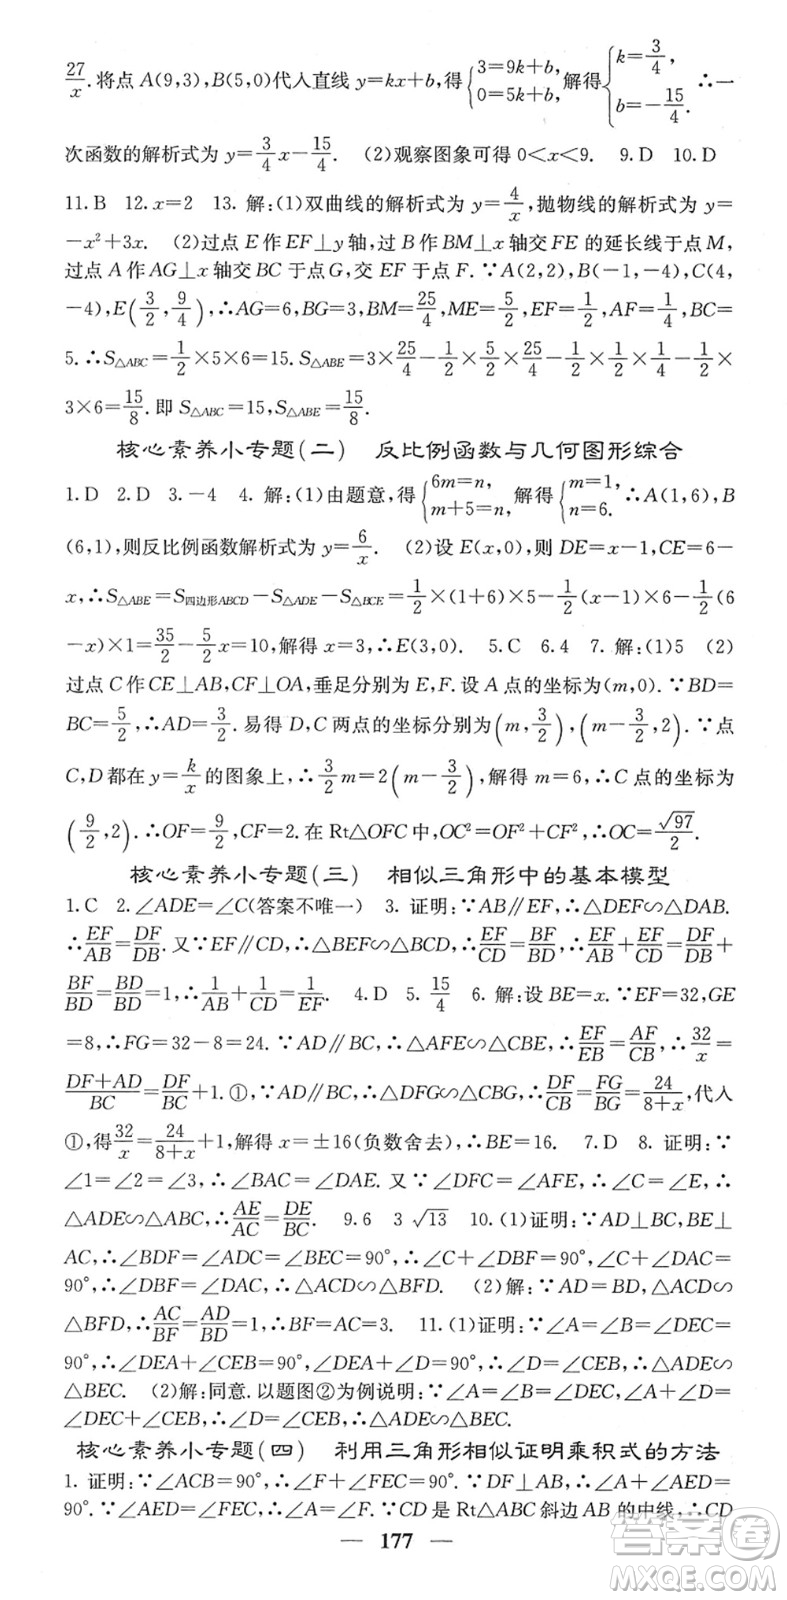 27/x. 将点 A(9,3),B(5,0)代入直线 y=kx+b,得{3=9k+b, 0=5k+b, 解得{k=3/4, b=-15/4. ∴一
次函数的解析式为 y=3/4x-15/4. (2)观察图象可得 0<x<9. 9.D 10.D
11.B 12.x=2 13.解:(1)双曲线的解析式为 y=4/x,抛物线的解析式为 y=
-x²+3x. (2)过点 E 作 EF⊥y 轴,过 B 作 BM⊥x 轴交 FE 的延长线于点 M,
过点 A 作 AG⊥x 轴交 BC 于点 G,交 EF 于点 F. ∵A(2,2),B(-1,-4),C(4,
-4),E(3/2,9/4),∴AG=6,BG=3,BM=25/4,ME=5/2,EF=1/2,AF=1/4,BC=
5. ∴S△ABC=1/2×5×6=15. S△ABE=3×25/4-1/2×5/2×25/4-1/2×1/2×1/4-1/2×
3×6=15/8. 即 S△ABC=15,S△ABE=15/8.
核心素养小专题(二) 反比例函数与几何图形综合
1.D 2.D 3.-4 4.解:(1)由题意,得{6m=n, m+5=n, 解得{m=1, n=6. ∴A(1,6),B
(6,1),则反比例函数解析式为 y=6/x. (2)设 E(x,0),则 DE=x-1,CE=6-
x,∴S△ABE=S四边形ABCD-S△ADE-S△BCE=1/2×(1+6)×5-1/2(x-1)×6-1/2(6
-x)×1=35/2-5/2x=10,解得 x=3,∴E(3,0). 5.C 6.4 7.解:(1)5 (2)
过点 C 作 CE⊥AB,CF⊥OA,垂足分别为 E,F. 设 A 点的坐标为(m,0). ∵BD=
BC=5/2,∴AD=3/2. 易得 D,C 两点的坐标分别为(m,3/2),(m-3/2,2). ∵点
C,D 都在 y=k/x 的图象上,∴3/2m=2(m-3/2),解得 m=6,∴C 点的坐标为
(9/2,2). ∴OF=9/2,CF=2. 在 Rt△OFC 中,OC²=OF²+CF²,∴OC=√97/2.
核心素养小专题(三) 相似三角形中的基本模型
1.C 2.∠ADE=∠C(答案不唯一) 3.证明:∵AB∥EF,∴△DEF∽△DAB.
∴EF/AB=DF/DB. 又∵EF∥CD,∴△BEF∽△BCD,∴EF/CD=BF/BD,∴EF/AB+EF/CD=DF/DB+
BF/BD=BD/BD=1,∴1/AB+1/CD=1/EF. 4.D 5.15/4 6.解:设 BE=x. ∵EF=32,GE
=8,∴FG=32-8=24. ∵AD∥BC,∴△AFE∽△CBE,∴EF/EB=AF/CB,∴32/x=
DF+AD/BC=DF/BC+1. ①,∵AD∥BC,∴△DFG∽△CBG,∴DF/CB=FG/BG=24/8+x,代入
①,得32/x=24/8+x+1,解得 x=±16(负数舍去),∴BE=16. 7.D 8.证明:∵
∠1=∠2=∠3,∴∠BAC=∠DAE. 又∵∠DFC=∠AFE,∴∠C=∠E,∴
△ADE∽△ABC,∴AE/AC=DE/BC. 9.6 3√13 10.(1)证明:∵AD⊥BC,BE⊥
AC,∴∠BDF=∠ADC=∠BEC=90°,∴∠C+∠DBF=90°,∠C+∠DAC=
90°,∴∠DBF=∠DAC,∴△ACD∽△BFD. (2)解:∵AD=BD,△ACD∽
△BFD,∴AC/BF=AD/BD=1,∴BF=AC=3. 11.(1)证明:∵∠A=∠B=∠DEC=
90°,∴∠DEA+∠CEB=90°,∠DEA+∠D=90°,∴∠D=∠CEB,∴△ADE∽
△BEC. (2)解:同意. 以题图②为例说明:∵∠A=∠B=∠DEC,∠A+∠D=
∠DEC+∠CEB,∴∠D=∠CEB,∴△ADE∽△BEC.
核心素养小专题(四) 利用三角形相似证明乘积式的方法
1.证明:∵∠ACB=90°,∴∠F+∠FEC=90°. ∵DF⊥AB,∴∠A+∠AED=
90°. ∵∠AED=∠FEC,∴∠A=∠F. ∵CD 是 Rt△ABC 斜边 AB 的中线,∴CD
— 177 —
答案卷
MXQE.COM